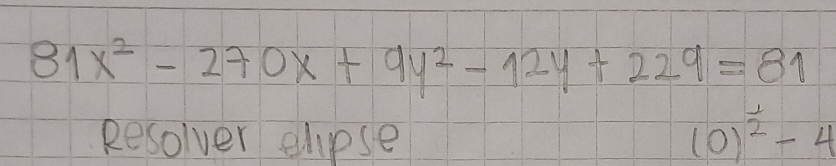 81x² - 270x + 9y² - 12y + 229 = 81
Resolver elipse (0)^½ - 4